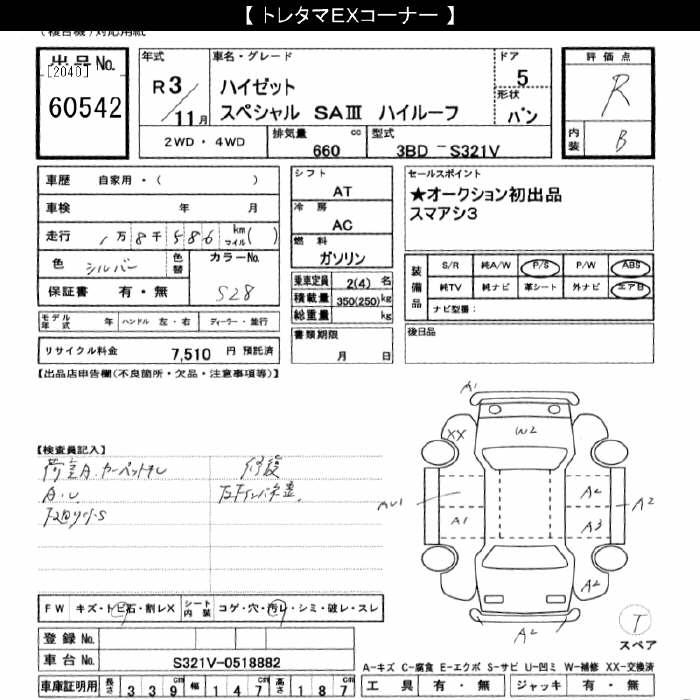 【 トレタマEXコーナー 】
(複合機)対応用紙
出品No.
[2040]
60542
年式
R 3 / 11 月
車名・グレード
ハイゼット
スペシャル SAⅢ ハイルーフ
ドア
5
形状
バン
2WD・4WD
排気量
660 cc
型式
3BD －S321V
評価点
R
内装
B
車歴 自家用・( )
車検 年 月
走行 1万 8千 586 km マイル( )
色 シルバー 色替
カラーNo.
S28
保証書 有・無
モデル年式 年 ハンドル 左・右 ディーラー・並行
リサイクル料金 7,510 円 預託済
シフト
AT
冷房
AC
燃料
ガソリン
乗車定員 2(4) 名
積載量 350(250) kg
総重量 kg
書類期限
月 日
セールスポイント
★オークション初出品
スマアシ3
装備品
S/R 純A/W P/S P/W ABS
純TV 純ナビ 革シート 外ナビ エアB
ナビ型番：
後日品
【出品店申告欄(不良箇所・欠品・注意事項等)】
【検査員記入】
A・U
修復
A1
XX
W2
AU1
A1
A2
A3
A2
A2
A2
T
スペア
FW キズ・トビ石・割レX
シート内装 コゲ・穴・汚レ・シミ・破レ・スレ
登録No.
車台No. S321V-0518882
車庫証明用 長さ 339 cm 幅 147 cm 高さ 187 cm
A-キズ C-腐食 E-エクボ S-サビ U-凹ミ W-補修 XX-交換済
工具 有・無 ジャッキ 有・無